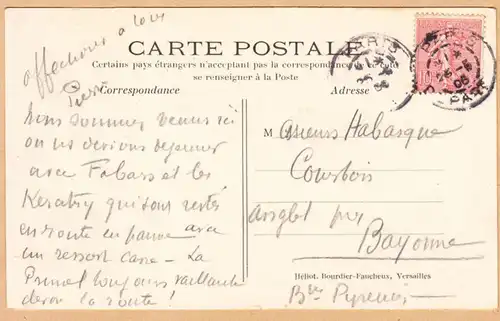 affectueux à tous
Pierre
CARTE POSTALE
Certains pays étrangers n'acceptent pas la correspondance de ce côté
se renseigner à la Poste
Correspondance
Adresse
Nous sommes venus ici
où nous devions déjeuner
avec et les
Keratry qui sont restés
en route en panne avec
un ressort cassé – La
toujours vaillante
la route !
Messieurs Habasque
Courbois
Anglet près
Bayonne
Héliot. Bourdier-Faucheux, Versailles
Bses Pyrénées
PARIS
PARIS